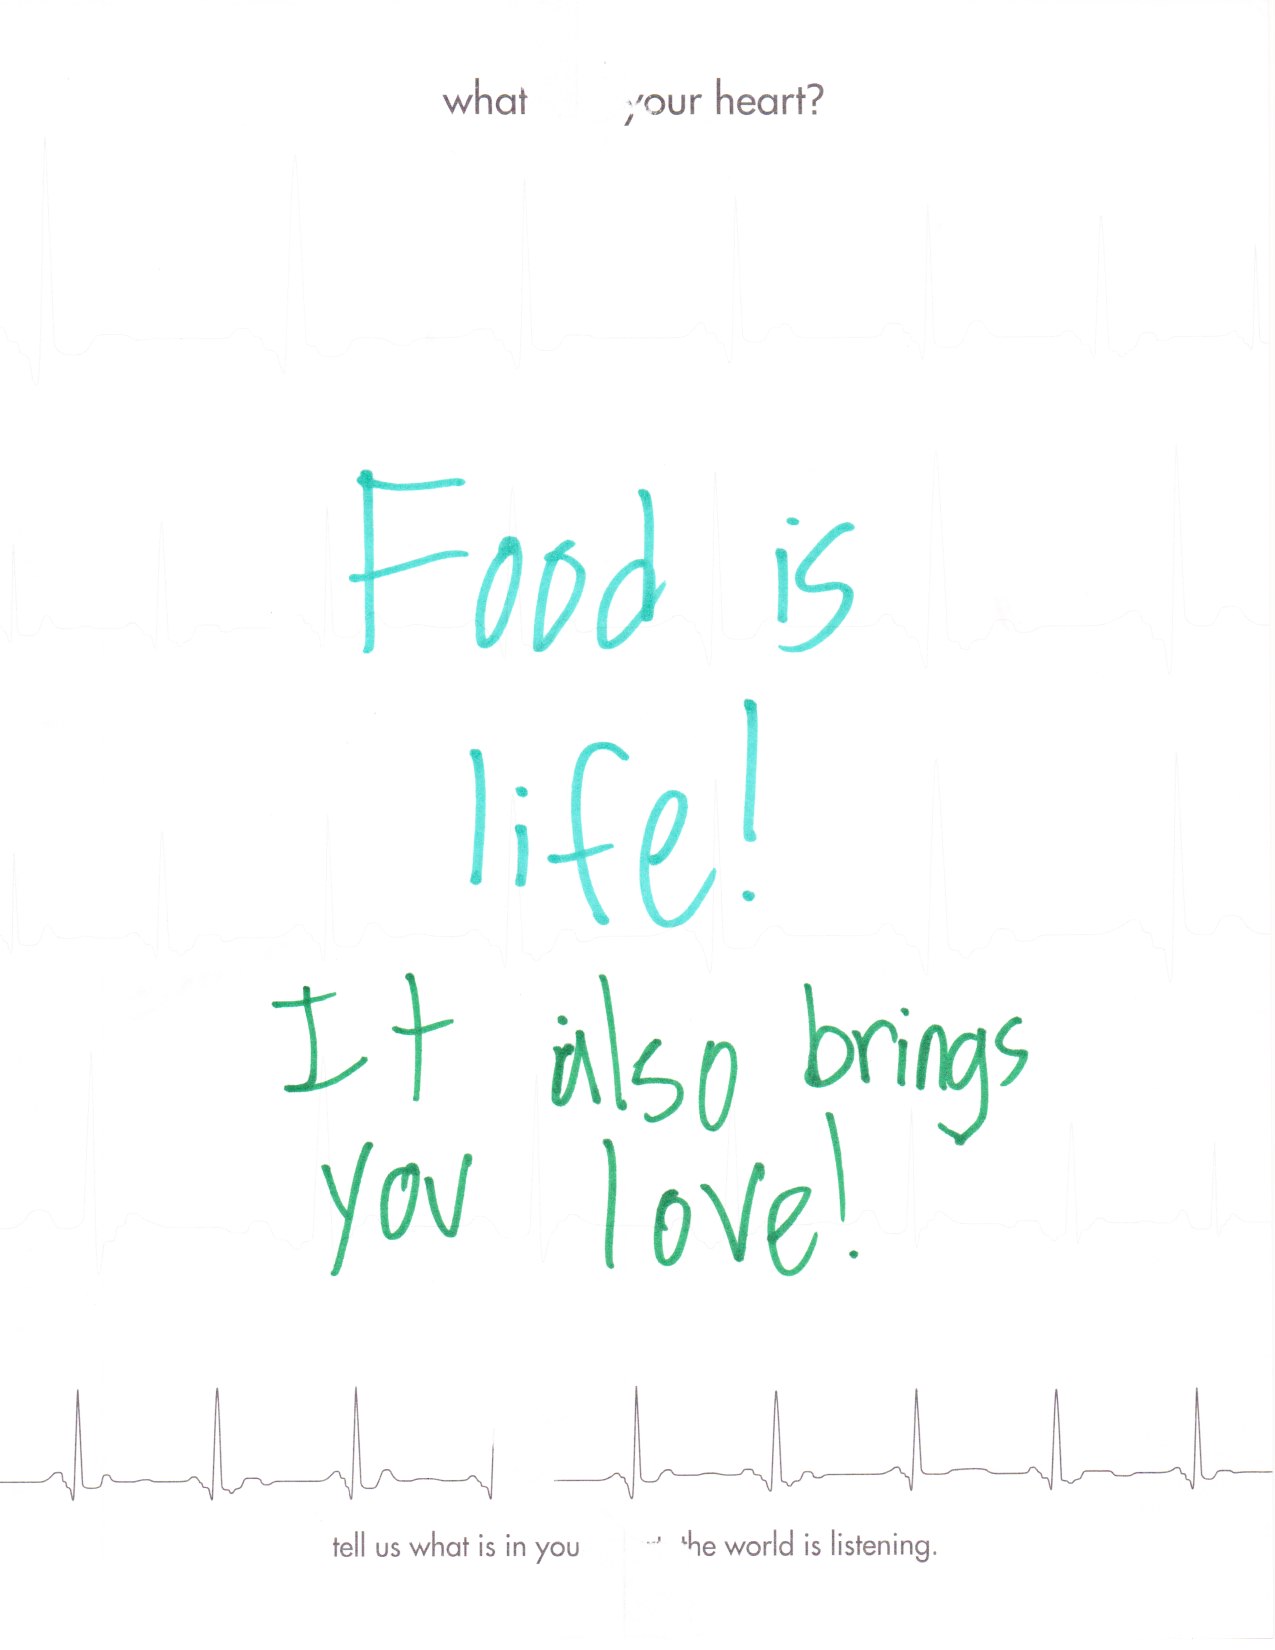 what your heart?
Food is
life!
It also brings
you love!
tell us what is in you the world is listening.